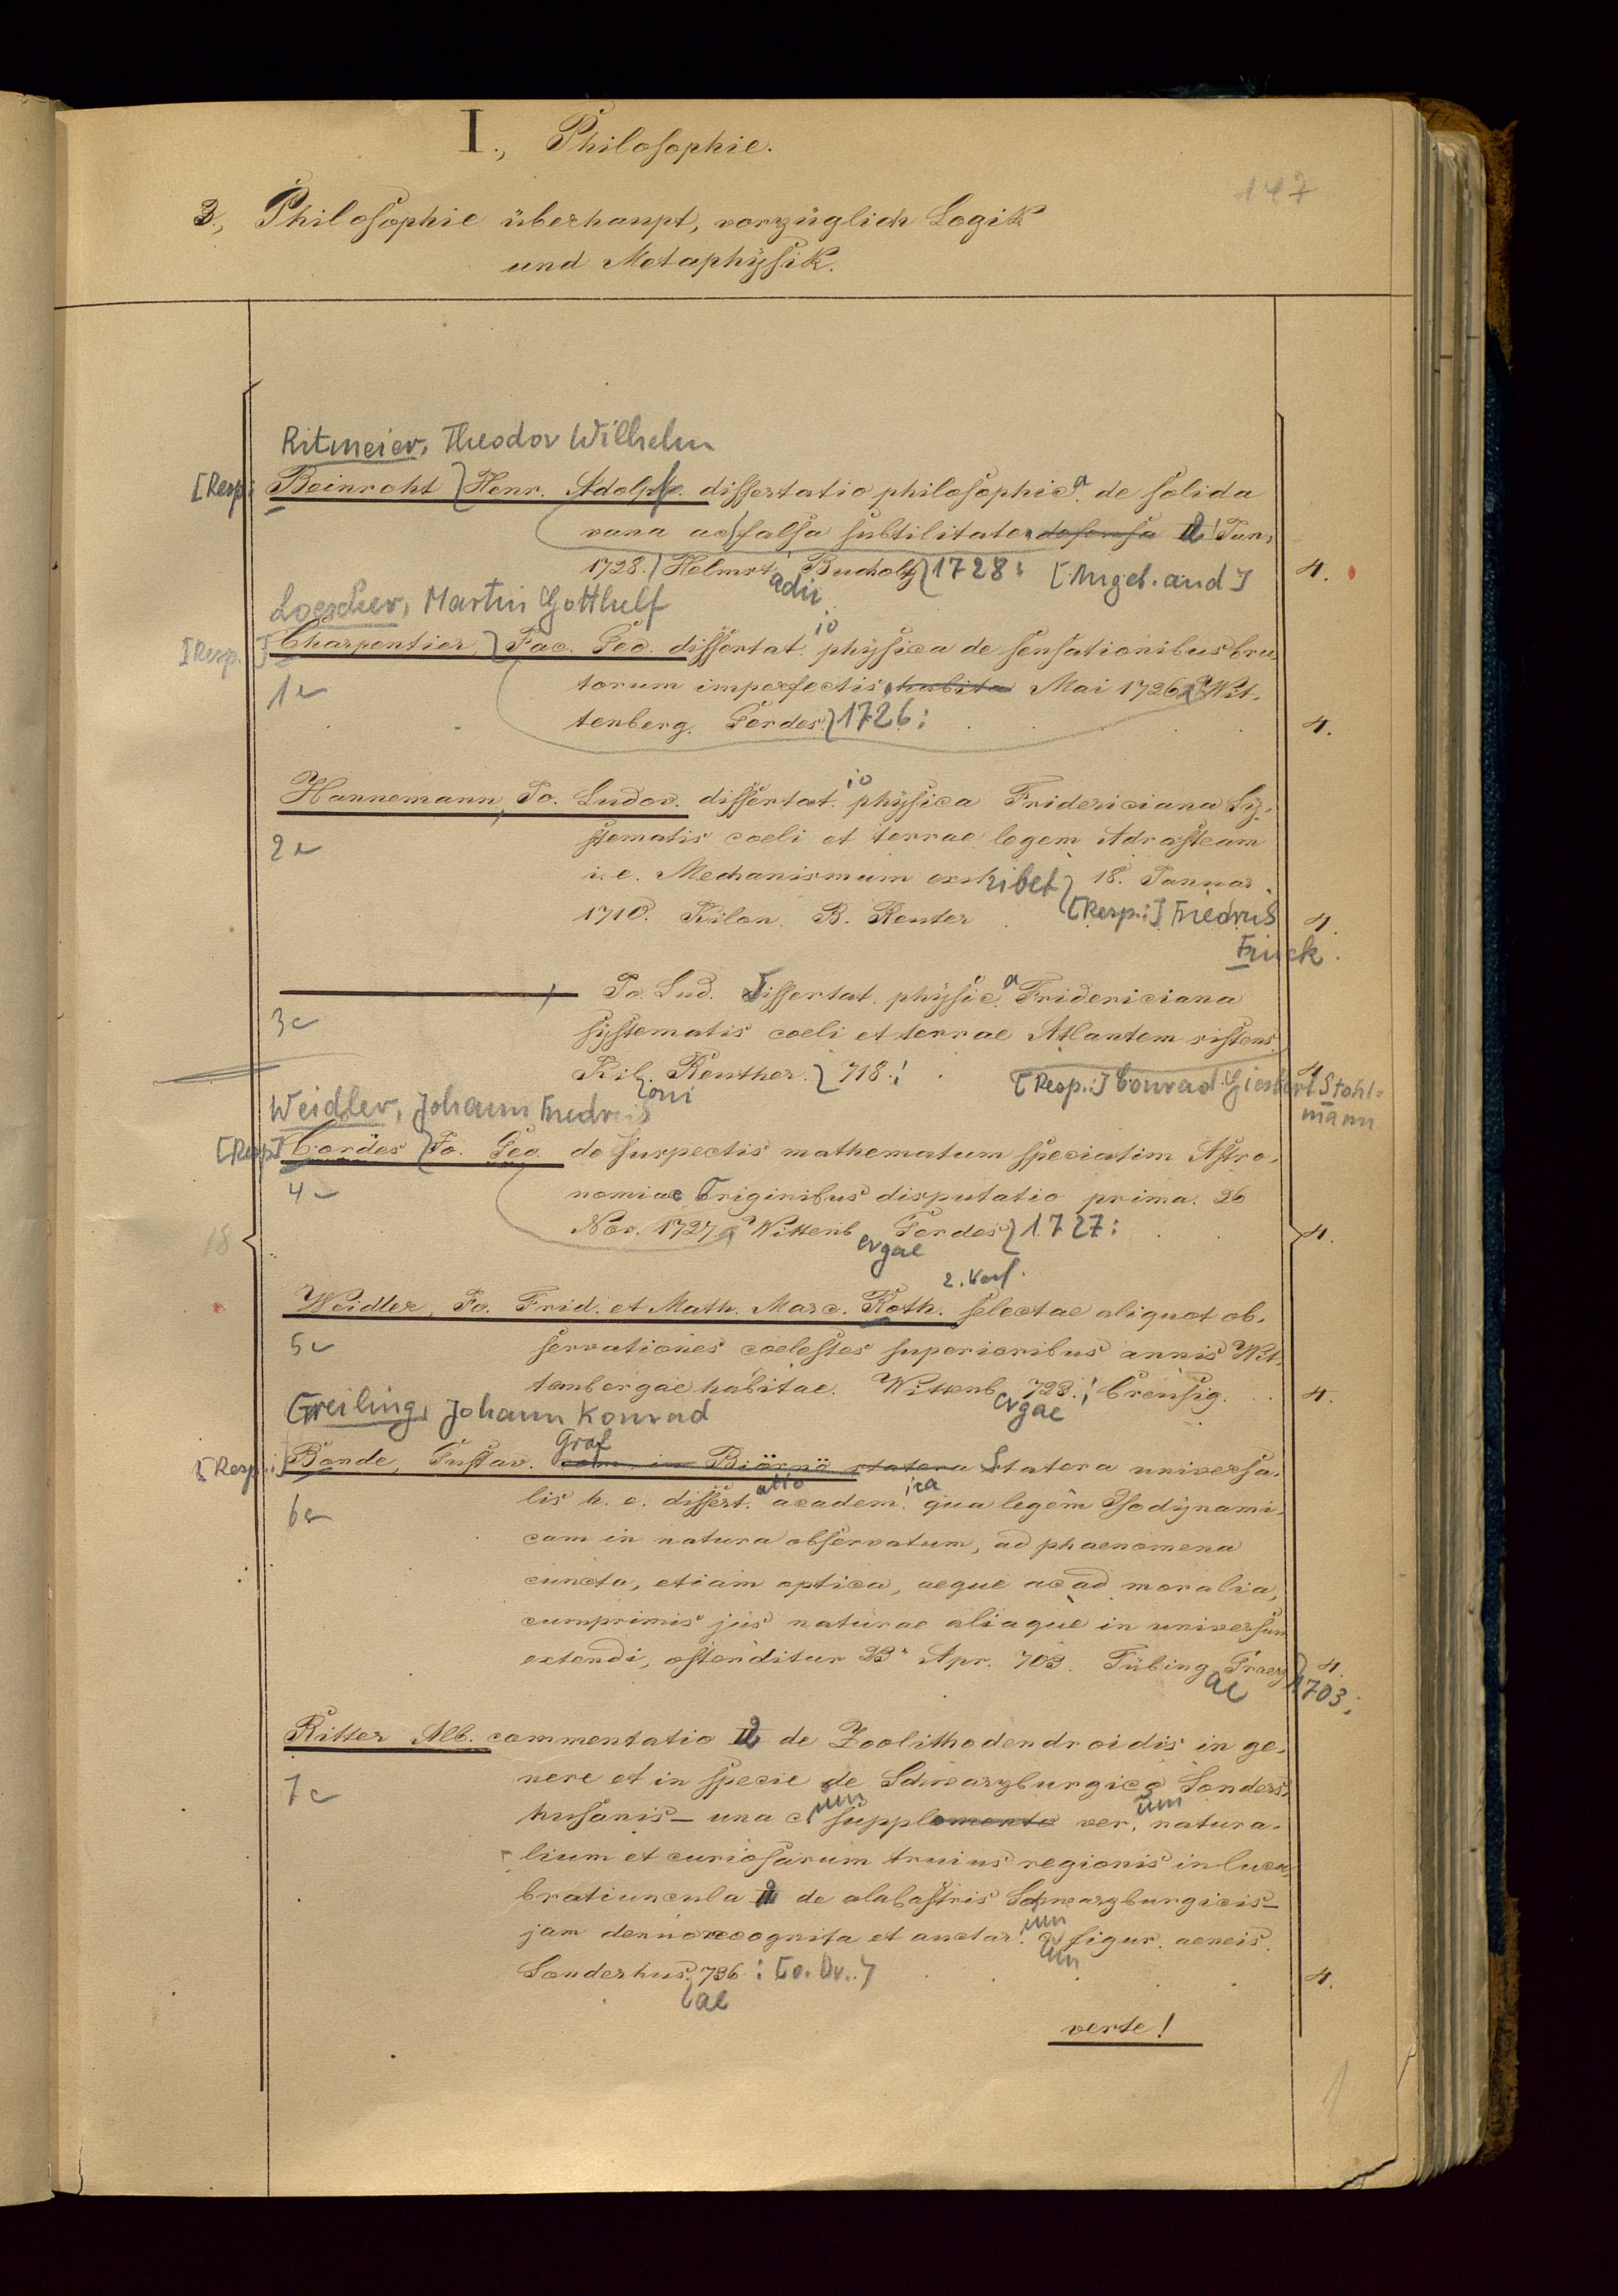 I., Philosophie.
147
3., Philosophie überhaupt, vorzüglich Logik
und Metaphysik.
Ritmeier, Theodor Wilhelm
[Resp: Beinroht Henr. Adolph. dissertatio philosophic.a de solida
vana ac falsa subtilitate defensa II Jun.
1728. Helmst.adii Bucholtz 1728: [Angeb. an d] 4.
Loescher, Martin Gotthelf
[Resp.] Charpentier, Jac. Geo. dissertat.io physica de sensationibus bru
1 torum imperfectis, habita Mai 1726. Wit-
tenberg. Gerdes. 1726: 4.
Hannemann, Jo. Ludov. dissertat.io physica Fridericiana Sy-
2 stematis coeli et terrae legem Adrasteam
i. e. Mechanismum exhibet 18. Januar
1710. Kilon. B. Reuter [Resp.:] Friedrich 4.
Frick.
Jo. Lud. Dissertat. physic.a Fridericiana
3 systematis coeli et terrae Atlantem sistens
Kil.oni Reuther. 718.: [Resp.:] Conrad Giesbert Stohl= 4
mann
Weidler, Johann Friedrich
[Resp] Cordes Jo. Geo. de suspectis mathematum speciatim Astro-
4 nomiae Originibus disputatio prima. 26
18 Nov. 1727. Wittenb.ergae Gerdes 1727: 4.
2. Verf.
Weidler, Jo. Frid. et Math. Marc. Roth. selectae aliquot ob-
5 servationes coelestes superioribus annis Wit-
tenbergae habitae. Wittenb.ergae 728.: Creusig. 4.
Greiling, Johann Konrad
[Resp.:] Bonde, Gustav. Graf in Biörnö statera Statera universa-
6 lis h. e. dissert.atio academ.ica qua legem Isodynami-
cam in natura observatum, ad phaenomena
cuncta, etiam optica, aeque ac ad moralia,
cumprimis jus naturae aliaque in universum
extendi, ostenditur 23. Apr. 703. Tübing.ae 1703: 4.
Ritter Alb. commentatio II de Zoolithodendroidis in ge-
7 nere et in specie de Schwarzburgico Sonders-
husanis – una cum supplemento rer.um natura-
lium et curiosarum huius regionis in lucu-
bratiuncula II de alabastris Schwarzburgicis –
jam denno recognita et auctar.um cum figur. aeneis.
Sonderhus.ae 736: [o. Dr.] 4.
verte!
1